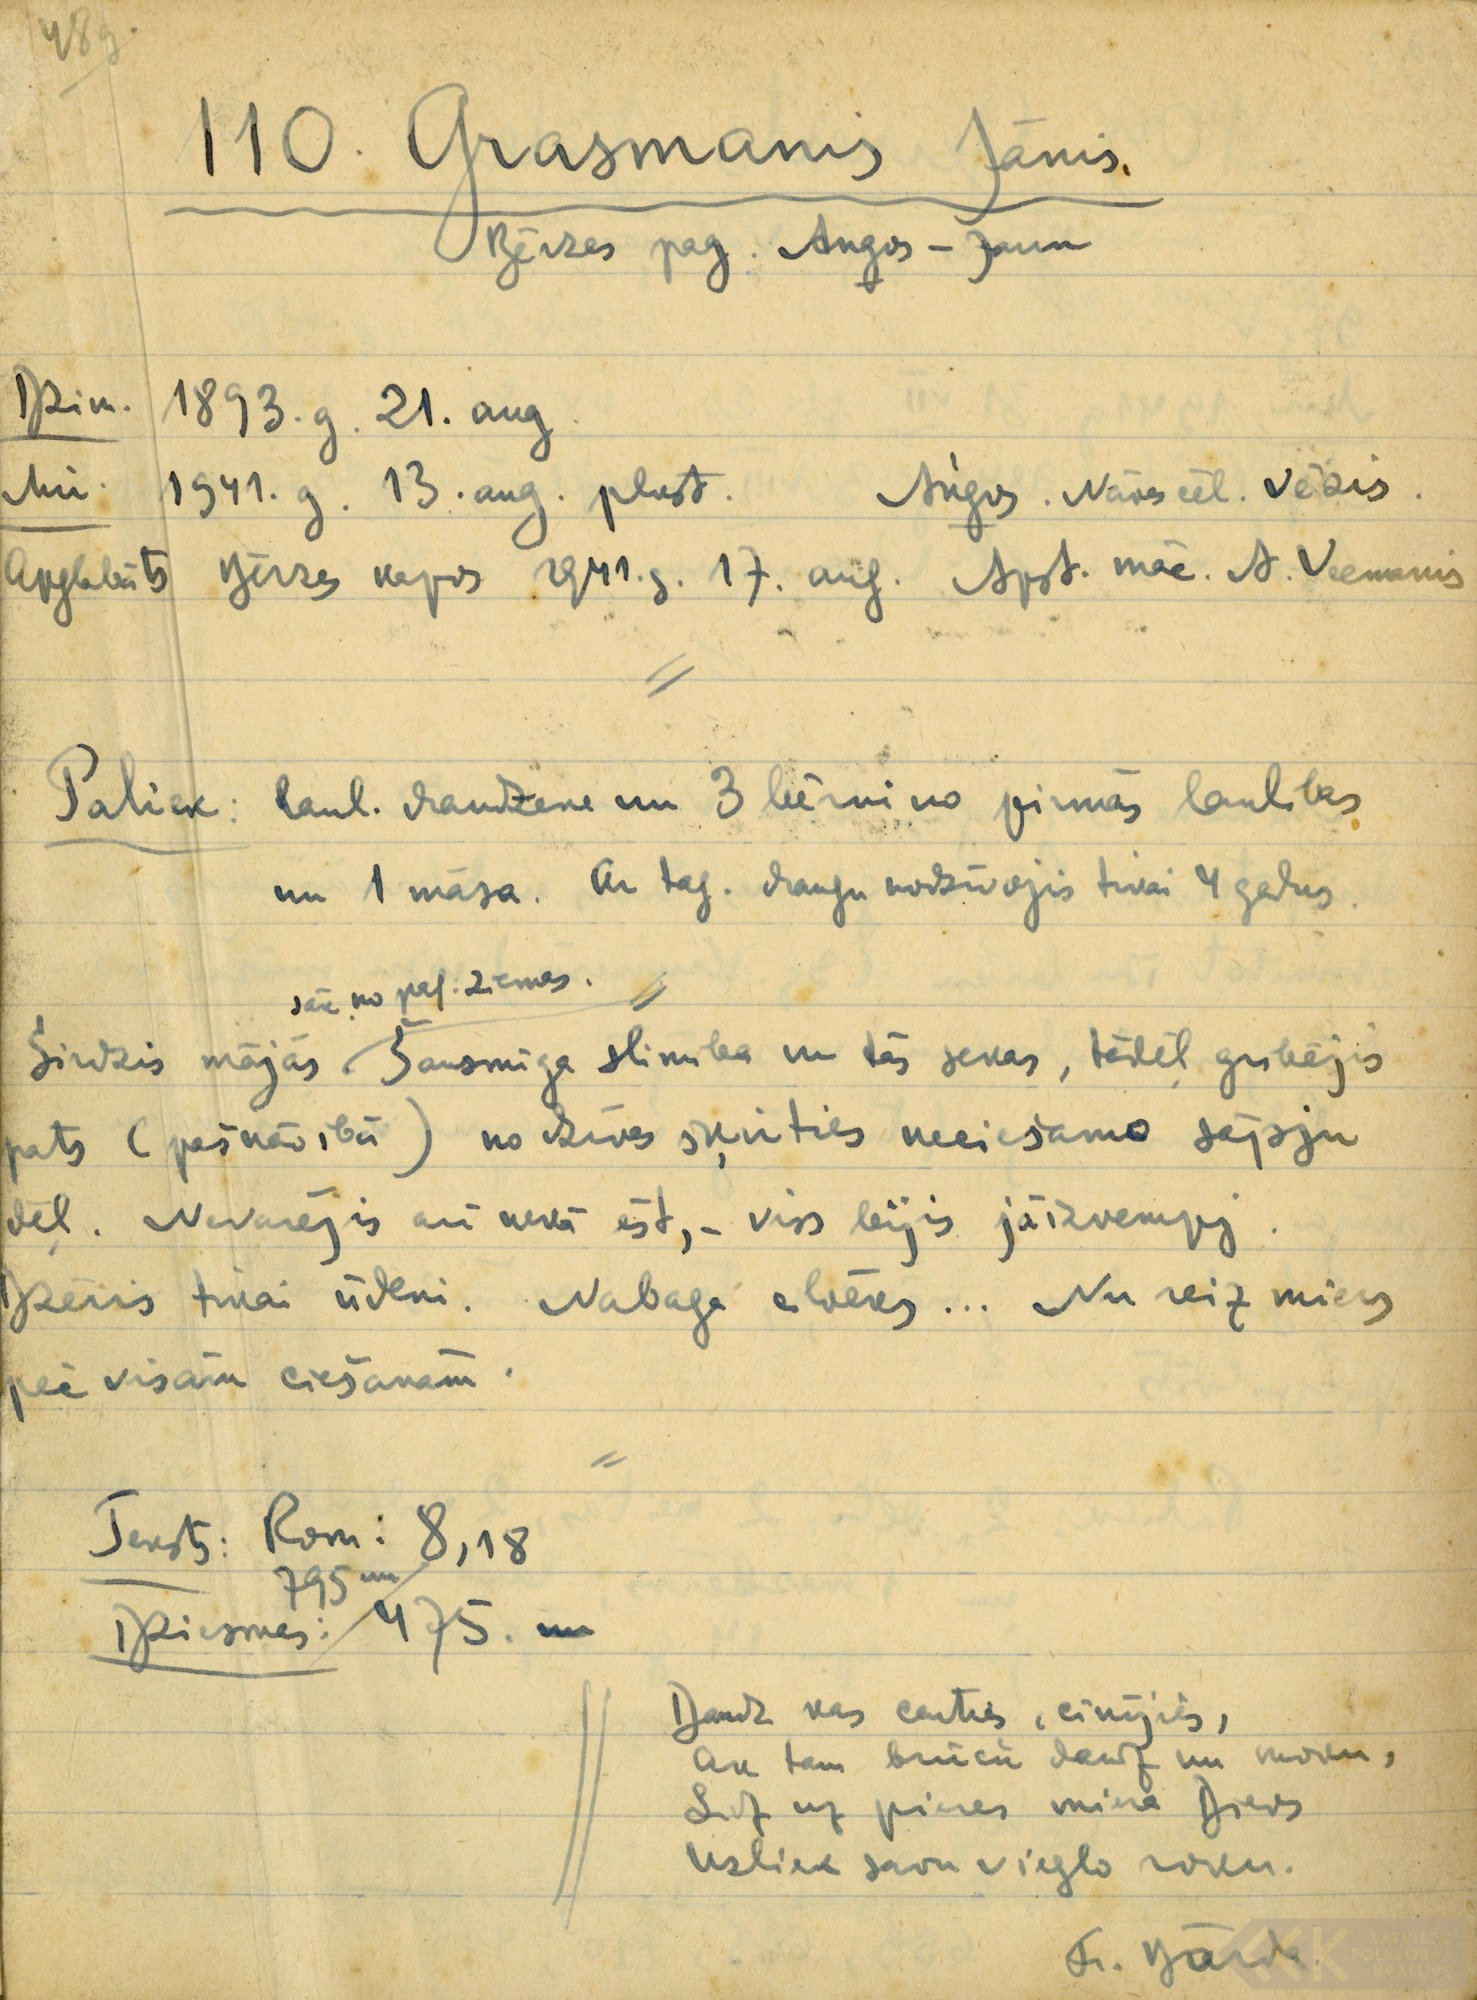 48 g.
110. Grasmanis Jānis.
Bērzes pag. Augos – Jaun
Dzim. 1893. g. 21. aug.
Mir. 1941. g. 13. aug. plkst. Augos. Nāves cēl. Vēzis.
Apglabāts Bērzes kapos 1941. g. 17. aug. Apst. māc. A. Veemanis
Paliek: laul. draudzene un 3 bērni no pirmās laulības
un 1 māsa. Ar tag. draugu nodzīvojis tikai 4 gadus.
sāk. no pag. ziemas.
Sirdzis mājās. Šausmīga slimība un tās sekas, tādēļ gribējis
pats (pašnāvībā) no dzīves šķirties neciešamo sāpju
dēļ. Nevarējis arī nekā ēst, – viss bijis jāizvemj.
Dzēris tikai ūdeni. Nabaga cilvēks ... Nu reiz miers
pēc visām ciešanām.
Teksts: Rom: 8,18
795 un
Dziesmas: 475. un
Daudz kas centies, cīnījies,
Ak tam brūču daudz un moku,
Līdz uz pieres viņa Dievs
Uzliek savu vieglo roku.
Fr. Bārda.
LATVIEŠU FOLKLORAS KRĀTUVE